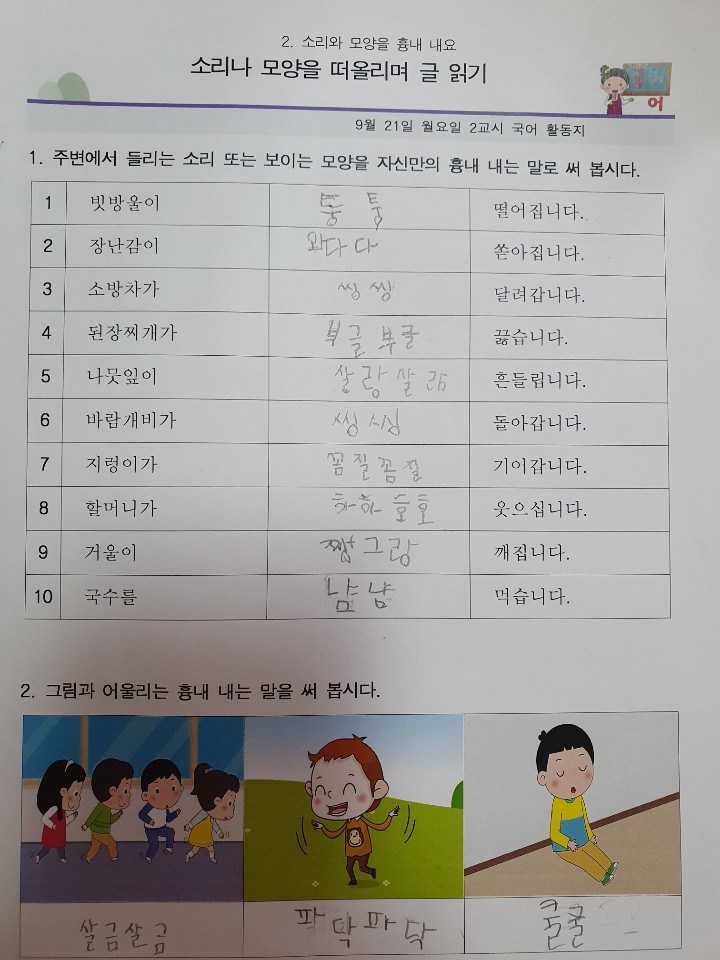 2. 소리와 모양을 흉내 내요
소리나 모양을 떠올리며 글 읽기
어
9월 21일 월요일 2교시 국어 활동지
1. 주변에서 들리는 소리 또는 보이는 모양을 자신만의 흉내 내는 말로 써 봅시다.
1 빗방울이 통 통 떨어집니다.
2 장난감이 와다다 쏟아집니다.
3 소방차가 씽씽 달려갑니다.
4 된장찌개가 부글부글 끓습니다.
5 나뭇잎이 살랑살랑 흔들립니다.
6 바람개비가 씽씽 돌아갑니다.
7 지렁이가 꼼질꼼질 기어갑니다.
8 할머니가 하하호호 웃으십니다.
9 거울이 쨍그랑 깨집니다.
10 국수를 냠냠 먹습니다.
2. 그림과 어울리는 흉내 내는 말을 써 봅시다.
살금살금 파닥파닥 쿨쿨